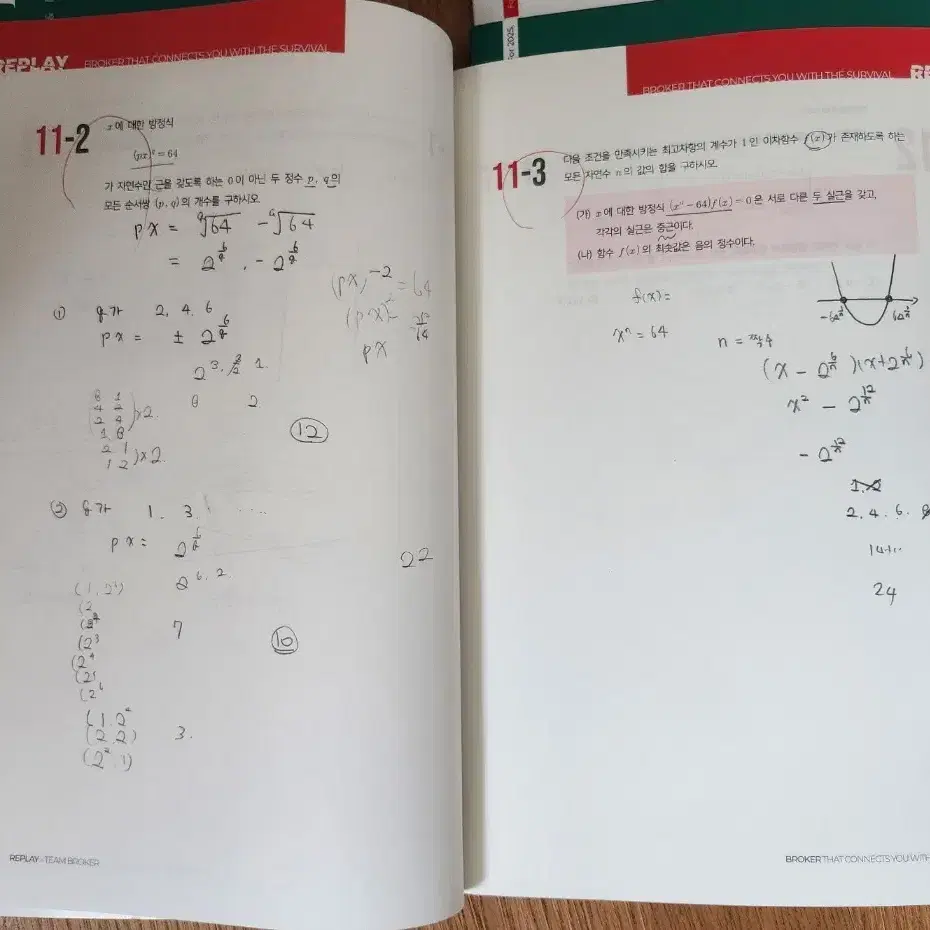 REPLAY BROKER THAT CONNECTS YOU WITH THE SURVIVAL
11-2
x에 대한 방정식
(px)^q = 64
가 자연수인 근을 갖도록 하는 0이 아닌 두 정수 p, q의
모든 순서쌍 (p, q)의 개수를 구하시오.
px = ᵠ√64 -ᵠ√64
= 2^(6/q), -2^(6/q)
(px)^-2 = 64
px
① q가 2, 4, 6
px = ± 2^(6/q)
2^3, 3/2 1.
8 2
8 1
4 2
2 4
1 8
)×2.
2 1
1 2
)×2
12
② q가 1. 3. ....
px = 2^(6/q)
2^6, 2
(2
(2^3
(2^4
(2^5
(2^6
7
10
(1, 2^2
(2, 2)
(2^2, 1)
3.
22
REPLAY TEAM BROKER
For 2025.
BROKER THAT CONNECTS YOU WITH THE SURVIVAL RE
11-3
다음 조건을 만족시키는 최고차항의 계수가 1인 이차함수 f(x)가 존재하도록 하는
모든 자연수 n의 값의 합을 구하시오.
(가) x에 대한 방정식 (x^n - 64)f(x) = 0은 서로 다른 두 실근을 갖고,
각각의 실근은 중근이다.
(나) 함수 f(x)의 최솟값은 음의 정수이다.
f(x)=
x^n = 64
n =
-64^(1/n) 64^(1/n)
(x - 2^(6/n))(x + 2^(6/n))
x^2 - 2^(12/n)
- 2^(12/n)
2. 4. 6.
24
BROKER THAT CONNECTS YOU WITH